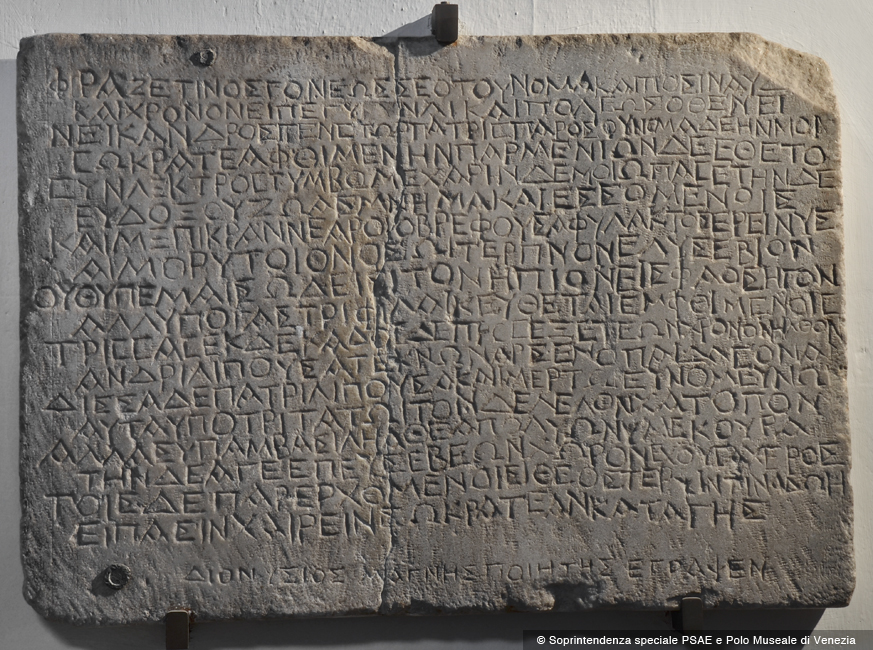 ΦΡΑΖΕΤΙΝΟΣΓΟΝΕΩΣΣΕΟΤΟΥΝΟΜΑΚΑΙΠΟΣΙΝΑΥΔ
ΚΑΙΧΡΟΝΟΝΕΙΠΕΓΥΝΑΙΚΑΙΠΟΛΕΩΣΟΘΕΝΕΙ
ΝΕΙΚΑΝΔΡΟΣΓΕΝΕΤΩΡΠΑΤΡΙΣΠΑΡΟΣΟΥΝΟΜΑΔΕΗΝΜΟΙ
ΣΩΚΡΑΤΕΑΦΘΙΜΕΝΗΝΠΑΡΜΕΝΙΩΝΔΕΕΘΕΤΟ
ΣΥΝΛΕΚΤΡΟΣΤΥΜΒΩΜΕΧΑΡΙΝΔΕΜΟΙΩΠΑΣΕΤΗΝΔΕ
ΕΥΔΟΞΟΥΖΩΑΣΜΝΗΜΑΚΑΙΕΣΣΟΜΕΝΟΙΣ
ΚΑΙΜΕΠΙΚΡΑΝΝΕΑΡΟΙΟΒΡΕΦΟΥΣΑΦΥΛΑΚΤΟΣΕΡΕΙΝΥΣ
ΑΙΜΟΡΥΤΟΙΟΝΟΣΩΙΤΕΡΠΝΟΝΕΛΥΣΕΒΙΟΝ
ΟΥΘΥΠΕΜΑΙΣΩΔΕΙΣΙΤΟΝΗΠΙΟΝΕΙΣΦΑΟΣΗΓΟΝ
ΑΛΛΥΠΟΓΑΣΤΡΙΦΙΛΑΙΚΕΥΘΕΤΑΙΕΜΦΘΙΜΕΝΟΙΣ
ΤΡΙΣΣΑΣΕΚΔΕΚΑΔΑΣΔΕΠΡΟΣΕΞΕΤΕΩΝΧΡΟΝΟΝΗΛΘΟΝ
ΑΝΔΡΙΛΙΠΟΥΣΑΤΕΚΝΩΝΑΡΣΕΝΟΠΑΙΔΑΓΟΝΑΝ
ΔΙΣΣΑΔΕΠΑΤΡΙΛΙΠΟΥΣΑΚΑΙΙΜΕΡΤΩΣΥΝΟΜΕΥΝΩ
ΑΥΤΑΥΠΟΤΡΙΤΑΤΩΤΟΝΔΕΛΕΛΟΝΧΑΤΟΠΟΝ
ΑΛΛΑΣΥΠΑΜΒΑΣΙΛΗΑΘΕΑΠΟΛΥΩΝΥΜΕΚΟΥΡΑ
ΤΗΝΔΕΑΓΕΕΠΕΥΣΕΒΕΩΝΧΩΡΟΝΕΧΟΥΣΑΧΕΡΟΣ
ΤΟΙΣΔΕΠΑΡΕΡΧΟΜΕΝΟΙΣΙΘΕΟΣΤΕΡΨΙΝΤΙΝΑΔΩΗ
ΕΙΠΑΣΙΝΧΑΙΡΕΙΝΣΩΚΡΑΤΕΑΝΚΑΤΑΓΗΣ
ΔΙΟΝΥΣΙΟΣ ΜΑΓΝΗΣ ΠΟΙΗΤΗΣ ΕΓΡΑΨΕΝ
© Soprintendenza speciale PSAE e Polo Museale di Venezia